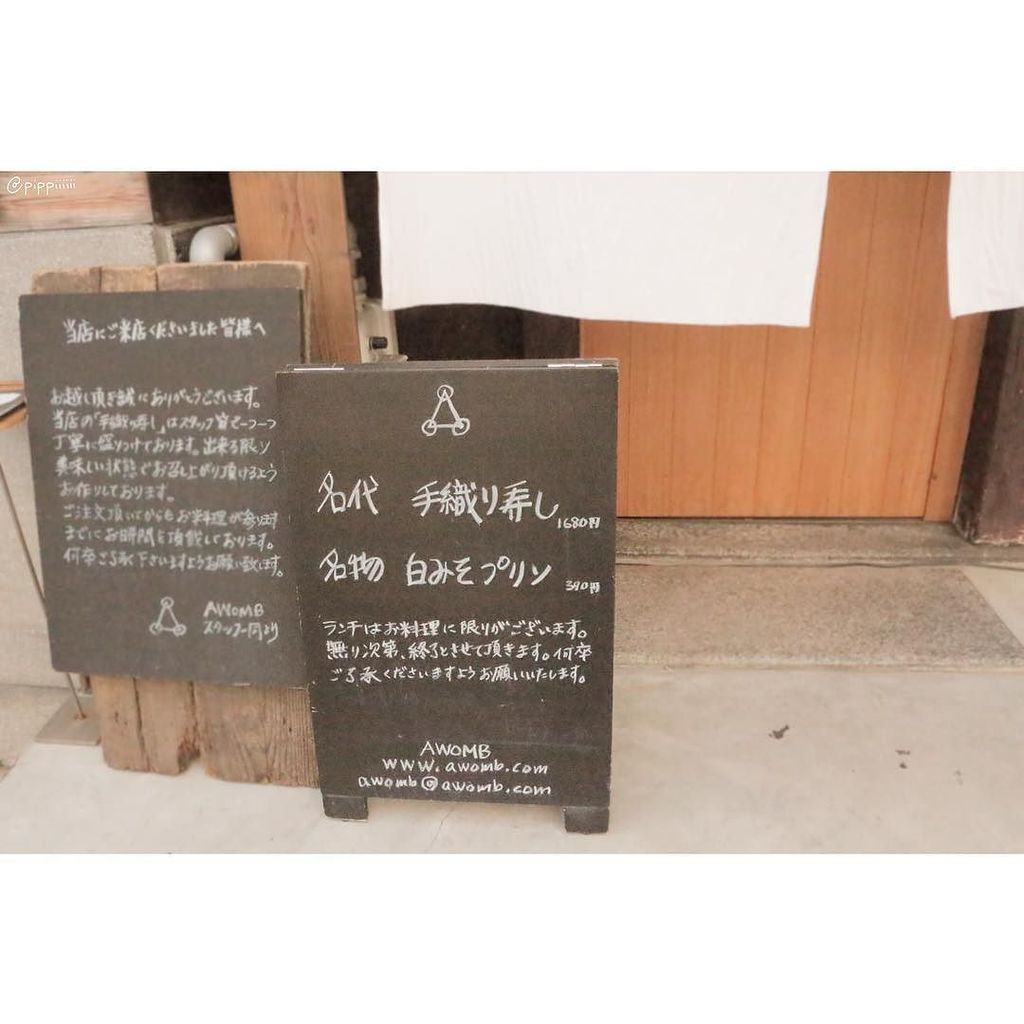 @pippiiiiii
当店にご来店くださいました皆様へ
お越し頂き誠にありがとうございます。
当店の「手織り寿し」はスタッフ皆で一つ一つ
丁寧に盛りつけております。出来る限り
美味しい状態でお召し上がり頂けるよう
お作りしております。
ご注文頂いてからお料理が参ります
までにお時間を頂戴しております。
何卒ご了承下さいますようお願い致します。
AWOMB
スタッフ一同より
名代 手織り寿し 1680円
名物 白みそプリン 390円
ランチはお料理に限りがございます。
無り次第、終了とさせて頂きます。何卒
ご了承くださいますようお願いいたします。
AWOMB
www.awomb.com
awomb@awomb.com